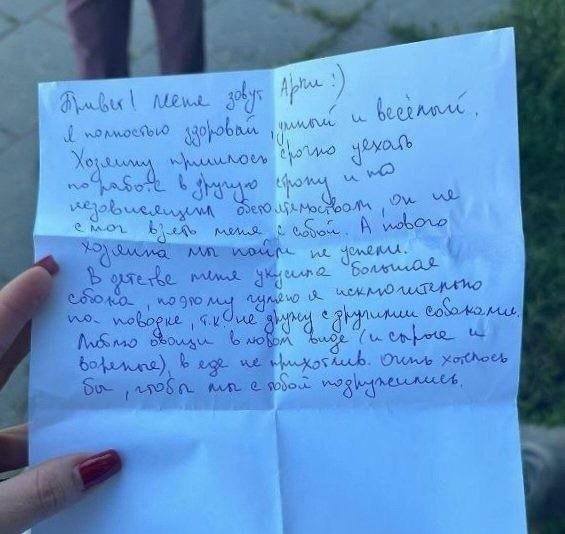 Привет! Меня зовут Арчи :)
Я полностью здоровый, умный и весёлый.
Хозяину пришлось срочно уехать
по работе в другую страну и по
независящим обстоятельствам, он не
смог взять меня с собой. А нового
хозяина мы найти не успели.
В детстве меня укусила большая
собака, поэтому гуляю я исключительно
на поводке, т.к. не дружу с другими собаками.
Люблю овощи в любом виде (и сырые и
вареные), в еде не прихотлив. Очень хотелось
бы, чтобы мы с тобой подружились.